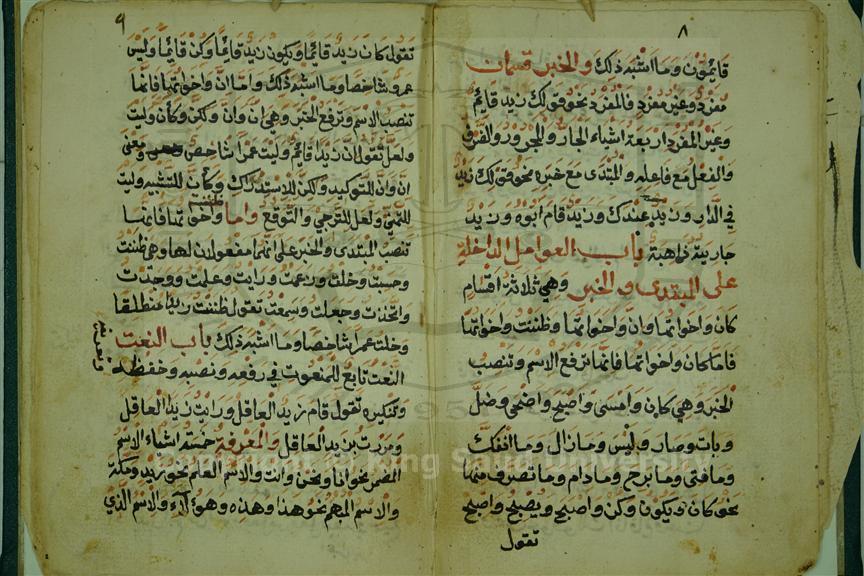 ٨
قايمون وما اشبه ذلك والخبر قسمان
مفرد وغير مفرد فالمفرد نحو قولك زيد قايم
وغير المفرد اربعة اشياء الجار والمجرور والظرف
والفعل مع فاعله والمبتدى مع خبره نحو قولك زيد
في الدار وزيد عندك وزيد قام ابوه وزيد
جاريته ذاهبة باب العوامل الداخلة
على المبتدى والخبر وهي ثلاثة اقسام
كان واخواتها وان واخواتها وظننت واخواتها
فاما كان واخواتها فانها ترفع الاسم وتنصب
الخبر وهي كان وامسى واصبح واضحى وضل
وبات وصار وليس ومازال وما انفك
وما فتى وما برح وما دام وما تصرف منها
نحو كان ويكون وكن واصبح ويصبح واصبح
تقول
٩
تقول كان زيد قايما ويكون زيد قايما وكن قايما وليس
عمرو شاخصا وما اشبه ذلك واما ان واخواتها فانها
تنصب الاسم وترفع الخبر وهي ان وان ولكن وكان وليت
ولعل تقول ان زيدا قايم وليت عمرا شاخص ومعنى
ان وان للتوكيد ولكن للاستدراك وكان للتشبيه وليت
للتمني ولعل للترجي والتوقع واما ظننت واخواتها فانها
تنصب المبتدى والخبر على انهما مفعولان لها وهي ظننت
وحسبت وخلت وزعمت ورايت وعلمت ووجدت
واتخذت وجعلت وسمعت تقول ظننت زيدا منطلقا
وخلت عمرا شاخصا وما اشبه ذلك باب النعت
النعت تابع للمنعوت في رفعه ونصبه وخفظه
وتنكيره تقول قام زيد العاقل ورايت زيدا العاقل
ومررت بزيد العاقل والمعرفة خمسة اشياء الاسم
المضمر نحو انا ونحن وانت والاسم العلم نحو زيد ومكة
والاسم المبهم نحو هذا وهذه وهؤلاء والاسم الذي